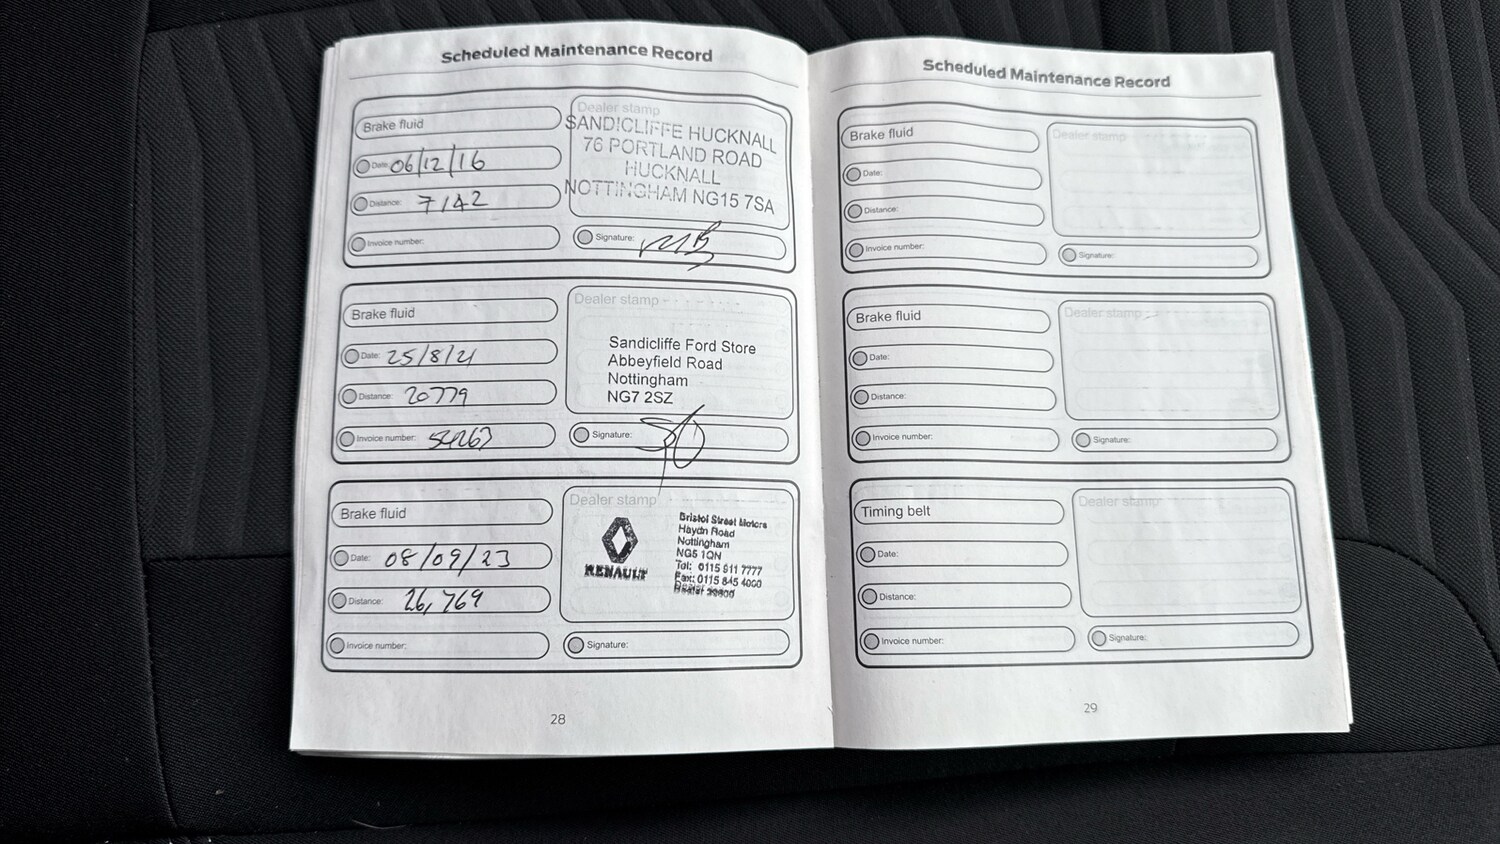 Scheduled Maintenance Record
Brake fluid
Date: 06/12/16
Distance: 7142
Invoice number:
Dealer stamp
SANDICLIFFE HUCKNALL
76 PORTLAND ROAD
HUCKNALL
NOTTINGHAM NG15 7SA
Signature:
Brake fluid
Date: 25/8/21
Distance: 20779
Invoice number:
Dealer stamp
Sandicliffe Ford Store
Abbeyfield Road
Nottingham
NG7 2SZ
Signature:
Brake fluid
Date: 08/09/23
Distance: 26,769
Invoice number:
Dealer stamp
RENAULT
Bristol Street Motors
Haydn Road
Nottingham
NG5 1QN
Tel: 0115 911 7777
Fax: 0115 845 4000
Dealer
Signature:
28
Scheduled Maintenance Record
Brake fluid
Date:
Distance:
Invoice number:
Dealer stamp
Signature:
Brake fluid
Date:
Distance:
Invoice number:
Dealer stamp
Signature:
Timing belt
Date:
Distance:
Invoice number:
Dealer stamp
Signature:
29